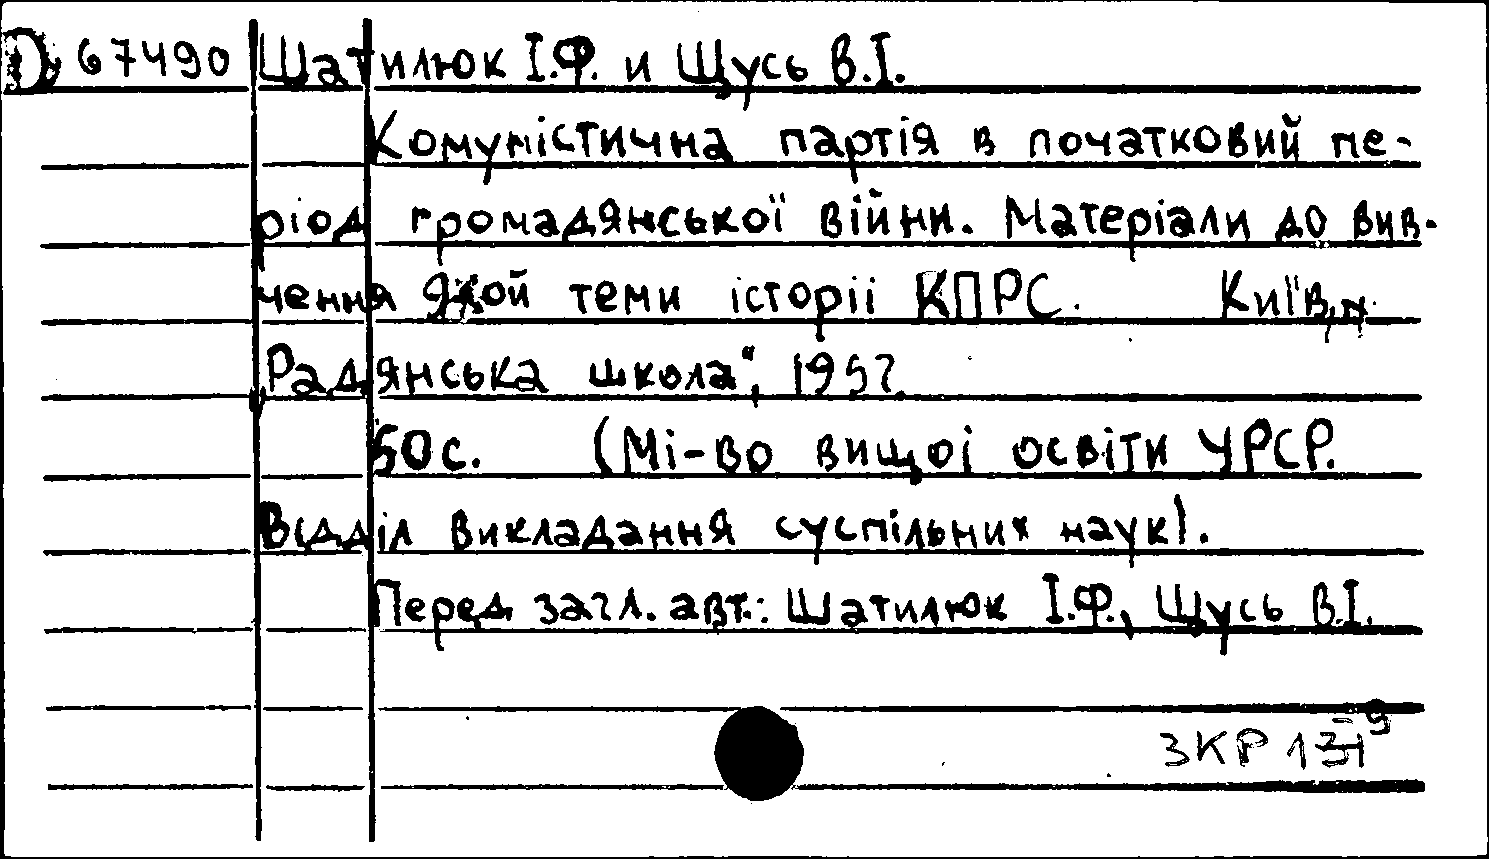 D 67490 Шатилюк І.Ф. и Щусь В.І.
Комуністична партія в початковий пе-
ріод громадянської війни. Матеріали до вив-
чення 9й теми історіі КПРС. Київ, „
Радянська школа“, 1957.
50 с. (Мі-во вищоі освіти УРСР.
Відділ викладання суспільних наук).
Перед загл. авт.: Шатилюк І.Ф., Щусь В.І.
ЗКР